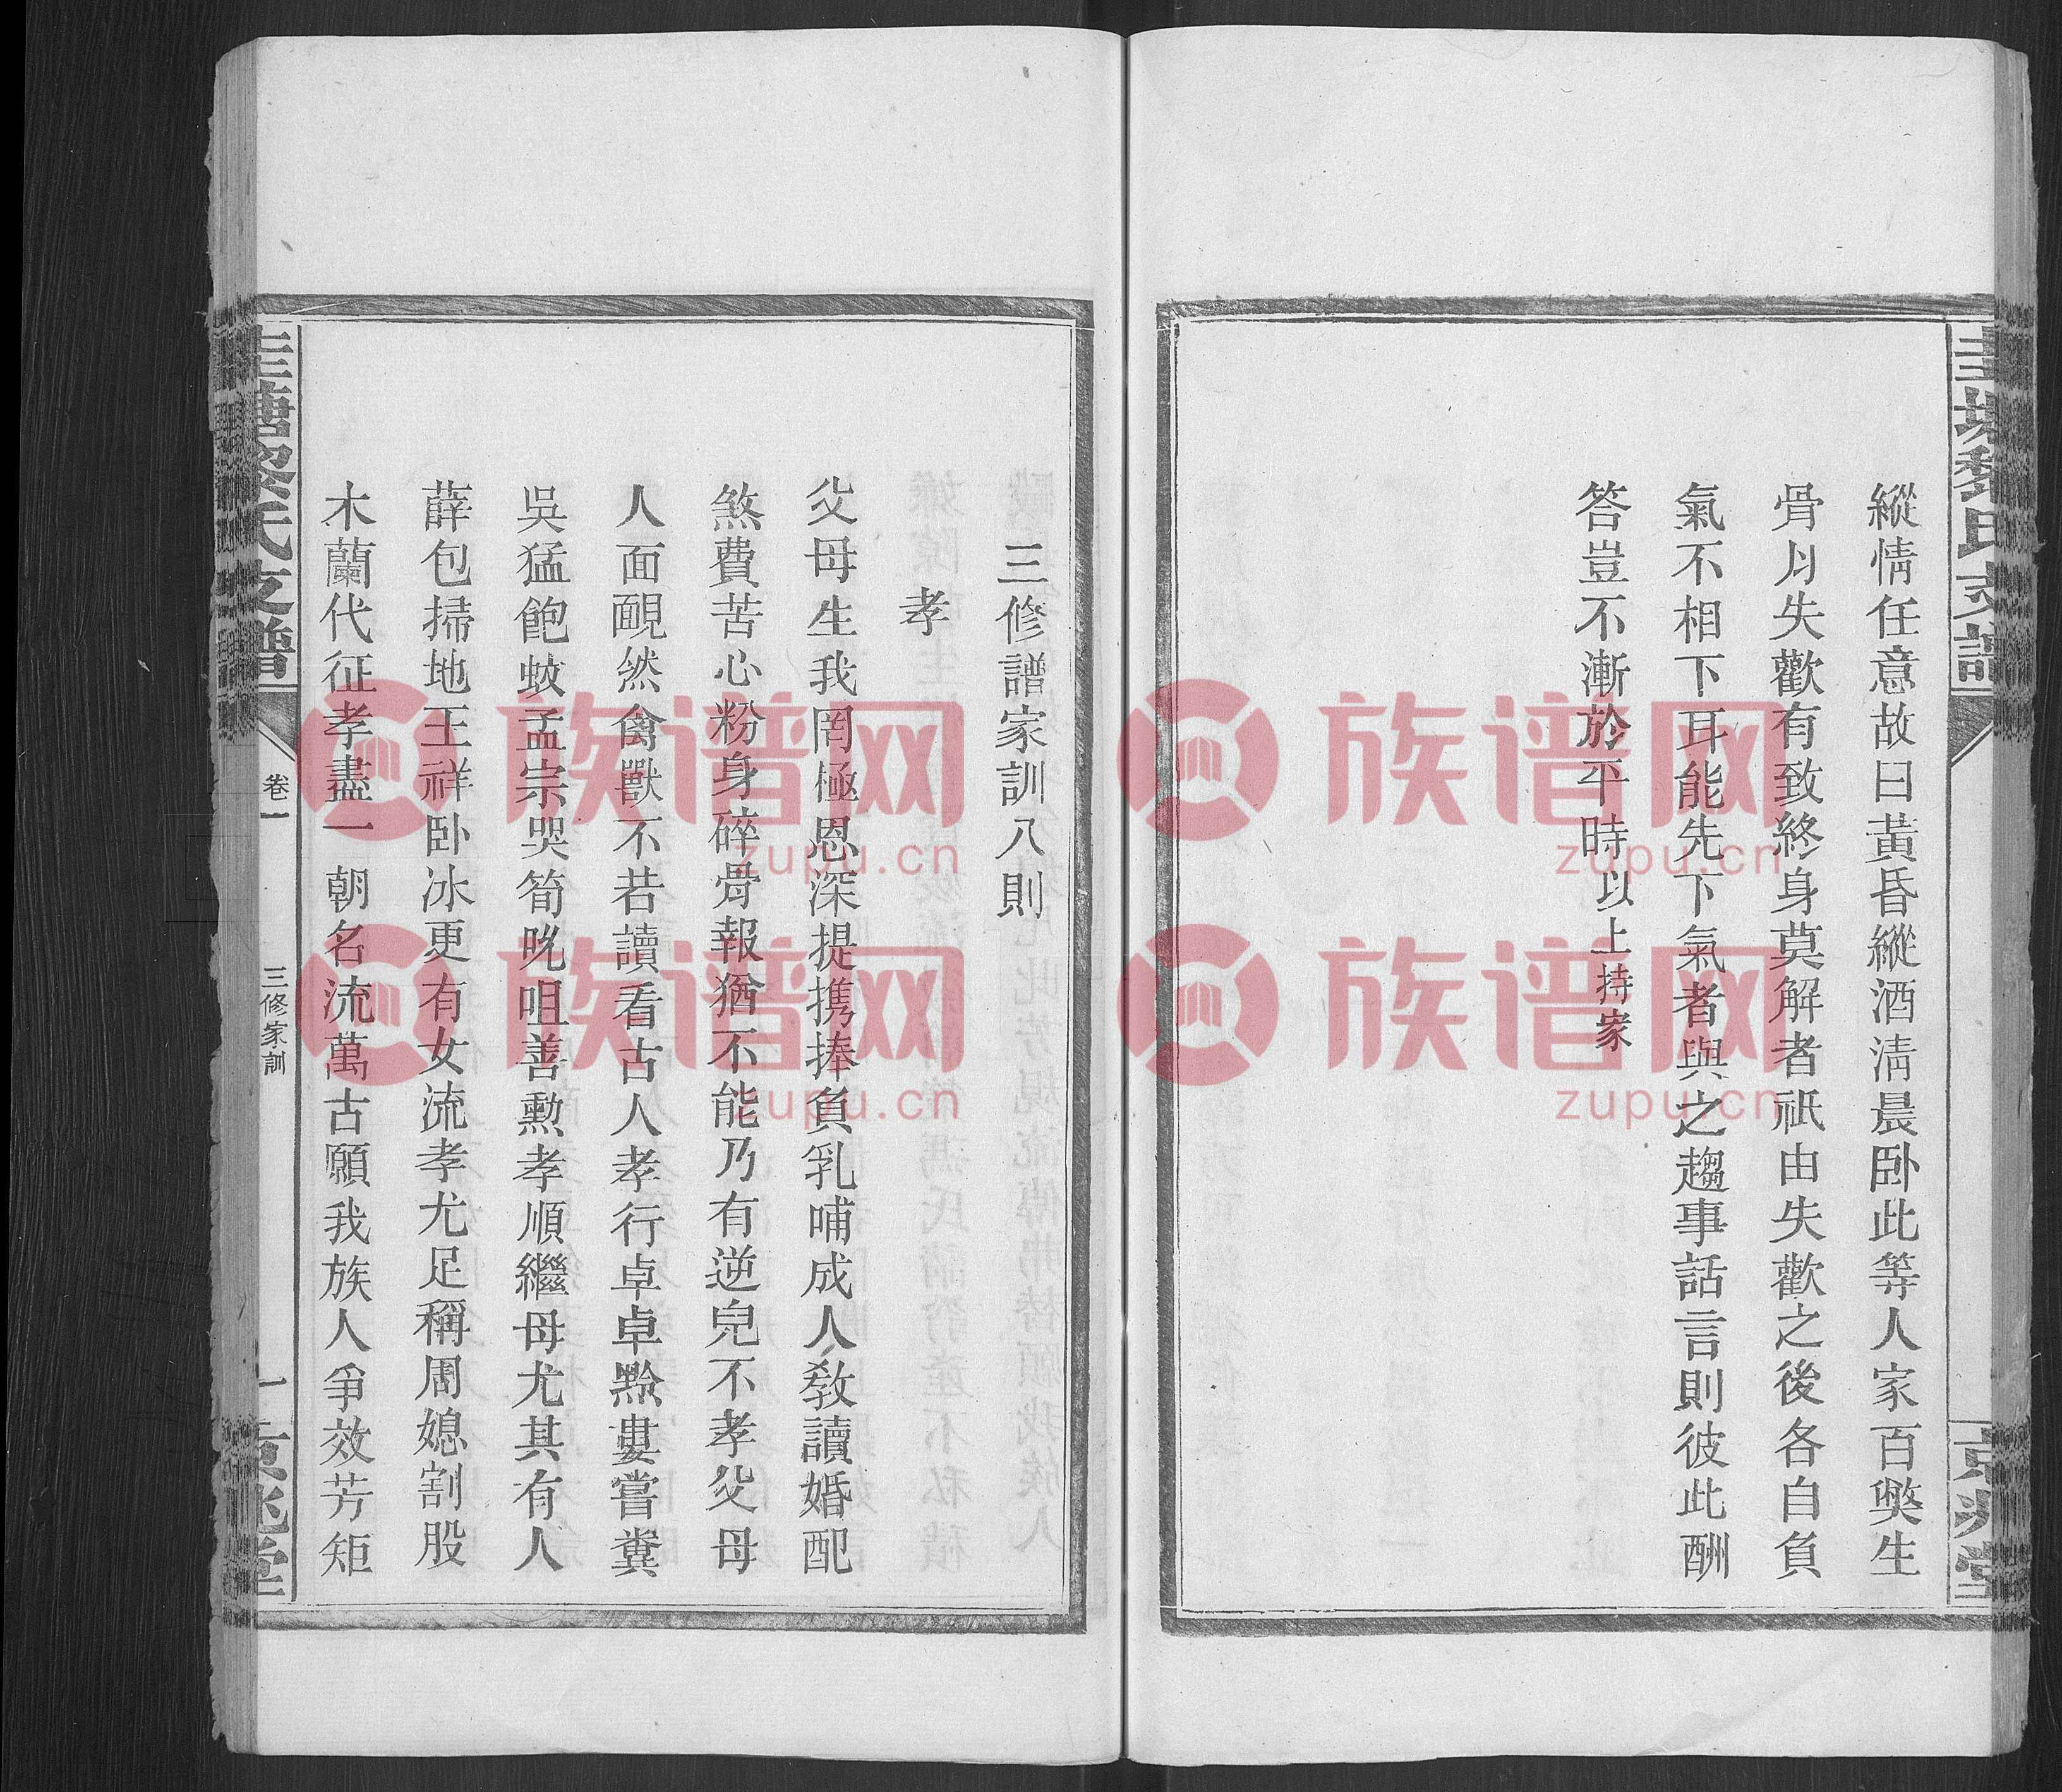 縱情任意故曰黃昏縱酒淸晨卧此等人家百獘生
骨肉失歡有致終身莫解者祇由失歡之後各自負
氣不相下耳能先下氣者與之趨事話言則彼此酬
答豈不漸於平時以上持家
三修譜家訓八則
孝
父母生我罔極恩深提携捧負乳哺成人敎讀婚配
煞費苦心粉身碎骨報猶不能乃有逆兒不孝父母
人面靦然禽獸不若讀看古人孝行卓卓黔婁嘗糞
吳猛飽蚊孟宗哭筍吮咀善勲孝順繼母尤其有人
薛包掃地王祥卧冰更有女流孝尤足稱周媳割股
木蘭代征孝盡一朝名流萬古願我族人爭效芳矩
塘黎氏支譜
卷一
三修家訓
一
京兆堂
族谱网
zupu.cn
族谱网
zupu.cn
族谱网
zupu.cn
族谱网
zupu.cn